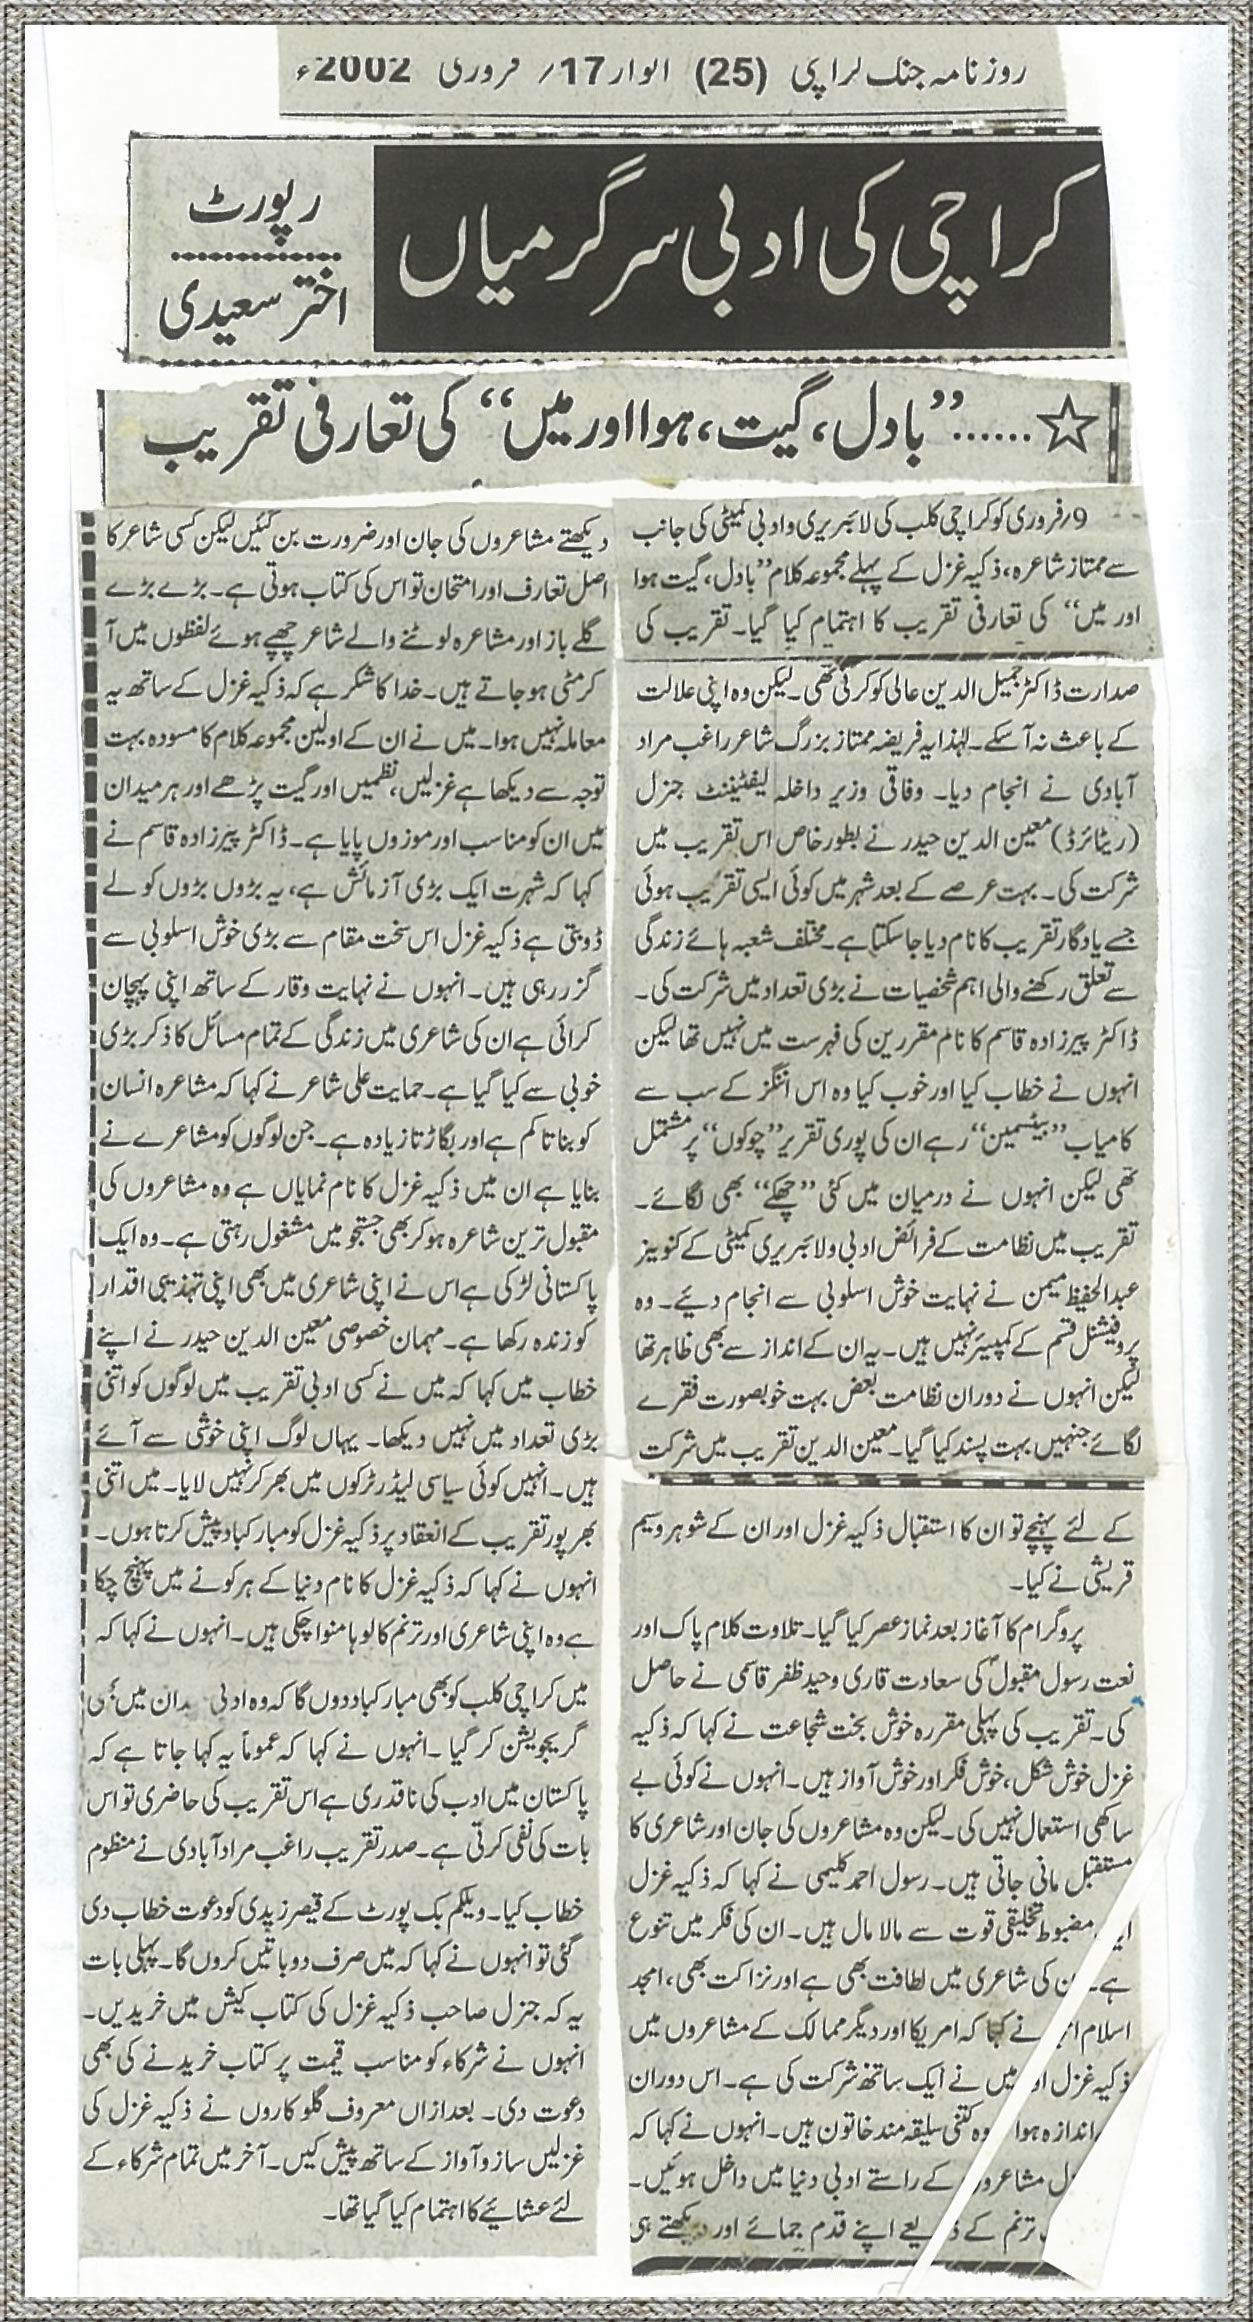 روزنامہ جنگ کراچی (25) اتوار 17/ فروری 2002ء
کراچی کی ادبی سرگرمیاں
رپورٹ
اختر سعیدی
☆......”بادل، گیت، ہوا اور میں“ کی تعارفی تقریب
9/فروری کو کراچی کلب کی لائبریری و ادبی کمیٹی کی جانب
سے ممتاز شاعرہ، ذکیہ غزل کے پہلے مجموعہ کلام ”بادل، گیت ہوا
اور میں“ کی تعارفی تقریب کا اہتمام کیا گیا۔ تقریب کی
صدارت ڈاکٹر جمیل الدین عالی کو کرنی تھی۔ لیکن وہ اپنی علالت
کے باعث نہ آ سکے۔ لہٰذا یہ فریضہ ممتاز بزرگ شاعر راغب مراد
آبادی نے انجام دیا۔ وفاقی وزیر داخلہ لیفٹیننٹ جنرل
(ریٹائرڈ) معین الدین حیدر نے بطور خاص اس تقریب میں
شرکت کی۔ بہت عرصے کے بعد شہر میں کوئی ایسی تقریب ہوئی
جسے یادگار تقریب کا نام دیا جا سکتا ہے۔ مختلف شعبہ ہائے زندگی
سے تعلق رکھنے والی اہم شخصیات نے بڑی تعداد میں شرکت کی۔
ڈاکٹر پیرزادہ قاسم کا نام مقررین کی فہرست میں نہیں تھا لیکن
انہوں نے خطاب کیا اور خوب کیا وہ اس اننگز کے سب سے
کامیاب ”بیٹسمین“ رہے ان کی پوری تقریر ”چوکوں“ پر مشتمل
تھی لیکن انہوں نے درمیان میں کئی ”چھکے“ بھی لگائے۔
تقریب میں نظامت کے فرائض ادبی و لائبریری کمیٹی کے کنوینر
عبدالحفیظ میمن نے نہایت خوش اسلوبی سے انجام دیئے۔ وہ
پروفیشنل قسم کے کمپیئر نہیں ہیں۔ یہ ان کے انداز سے بھی ظاہر تھا
لیکن انہوں نے دوران نظامت بعض بہت خوبصورت فقرے
لگائے جنہیں بہت پسند کیا گیا۔ معین الدین تقریب میں شرکت
کے لئے پہنچے تو ان کا استقبال ذکیہ غزل اور ان کے شوہر وسیم
قریشی نے کیا۔
پروگرام کا آغاز بعد نماز عصر کیا گیا۔ تلاوت کلام پاک اور
نعت رسول مقبولؐ کی سعادت قاری وحید ظفر قاسمی نے حاصل
کی۔ تقریب کی پہلی مقررہ خوش بخت شجاعت نے کہا کہ ذکیہ
غزل خوش شکل، خوش فکر اور خوش آواز ہیں۔ انہوں نے کوئی بے
ساکھی استعمال نہیں کی۔ لیکن وہ مشاعروں کی جان اور شاعری کا
مستقبل مانی جاتی ہیں۔ رسول احمد کلیمی نے کہا کہ ذکیہ غزل
مضبوط تخلیقی قوت سے مالا مال ہیں۔ ان کی فکر میں تنوع
ہے۔ کی شاعری میں لطافت بھی ہے اور نزاکت بھی، امجد
اسلام نے کہا کہ امریکا اور دیگر ممالک کے مشاعروں میں
ذکیہ غزل میں نے ایک ساتھ شرکت کی ہے۔ اس دوران
اندازہ ہوا وہ کتنی سلیقہ مند خاتون ہیں۔ انہوں نے کہا کہ
مشاعروں کے راستے ادبی دنیا میں داخل ہوئیں۔
ترنم کے ذریعے اپنے قدم جمائے اور دیکھتے ہی
دیکھتے مشاعروں کی جان اور ضرورت بن گئیں لیکن کسی شاعر کا
اصل تعارف اور امتحان تو اس کی کتاب ہوتی ہے۔ بڑے بڑے
گلے باز اور مشاعرہ لوٹنے والے شاعر چھپے ہوئے لفظوں میں آ
کر مٹی ہو جاتے ہیں۔ خدا کا شکر ہے کہ ذکیہ غزل کے ساتھ یہ
معاملہ نہیں ہوا۔ میں نے ان کے اولین مجموعہ کلام کا مسودہ بہت
توجہ سے دیکھا ہے غزلیں، نظمیں اور گیت پڑھے اور ہر میدان
میں ان کو مناسب اور موزوں پایا ہے۔ ڈاکٹر پیرزادہ قاسم نے
کہا کہ شہرت ایک بڑی آزمائش ہے، یہ بڑوں بڑوں کو لے
ڈوبتی ہے ذکیہ غزل اس سخت مقام سے بڑی خوش اسلوبی سے
گزر رہی ہیں۔ انہوں نے نہایت وقار کے ساتھ اپنی پہچان
کرائی ہے ان کی شاعری میں زندگی کے تمام مسائل کا ذکر بڑی
خوبی سے کیا گیا ہے۔ حمایت علی شاعر نے کہا کہ مشاعرہ انسان
کو بناتا کم ہے اور بگاڑتا زیادہ ہے۔ جن لوگوں کو مشاعرے نے
بنایا ہے ان میں ذکیہ غزل کا نام نمایاں ہے وہ مشاعروں کی
مقبول ترین شاعرہ ہو کر بھی جستجو میں مشغول رہتی ہے۔ وہ ایک
پاکستانی لڑکی ہے اس نے اپنی شاعری میں بھی اپنی تہذیبی اقدار
کو زندہ رکھا ہے۔ مہمان خصوصی معین الدین حیدر نے اپنے
خطاب میں کہا کہ میں نے کسی ادبی تقریب میں لوگوں کو اتنی
بڑی تعداد میں نہیں دیکھا۔ یہاں لوگ اپنی خوشی سے آئے
ہیں۔ انہیں کوئی سیاسی لیڈر ٹرکوں میں بھر کر نہیں لایا۔ میں اتنی
بھرپور تقریب کے انعقاد پر ذکیہ غزل کو مبارکباد پیش کرتا ہوں۔
انہوں نے کہا کہ ذکیہ غزل کا نام دنیا کے ہر کونے میں پہنچ چکا
ہے وہ اپنی شاعری اور ترنم کا لوہا منوا چکی ہیں۔ انہوں نے کہا کہ
میں کراچی کلب کو بھی مبارکباد دوں گا کہ وہ ادبی میں بھی
گریجویشن کر گیا۔ انہوں نے کہا کہ عموماً یہ کہا جاتا ہے کہ
پاکستان میں ادب کی ناقدری ہے اس تقریب کی حاضری تو اس
بات کی نفی کرتی ہے۔ صدر تقریب راغب مراد آبادی نے منظوم
خطاب کیا۔ ویلکم بک پورٹ کے قیصر زیدی کو دعوت خطاب دی
گئی تو انہوں نے کہا کہ میں صرف دو باتیں کروں گا۔ پہلی بات
یہ کہ جنرل صاحب ذکیہ غزل کی کتاب کیش میں خریدیں۔
انہوں نے شرکاء کو مناسب قیمت پر کتاب خریدنے کی بھی
دعوت دی۔ بعدازاں معروف گلوکاروں نے ذکیہ غزل کی
غزلیں ساز و آواز کے ساتھ پیش کیں۔ آخر میں تمام شرکاء کے
لئے عشائیے کا اہتمام کیا گیا تھا۔